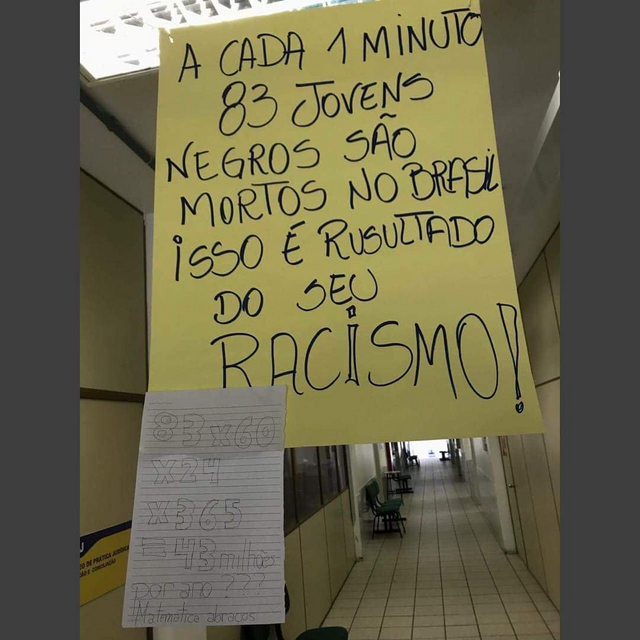 A CADA 1 MINUTO
83 JOVENS
NEGROS SÃO
MORTOS NO BRASIL
ISSO É RUSULTADO
DO SEU
RACISMO!
83x60
x24
x365
=43 milhões
por ano ???
Matemática abraços
DE PRÁTICA JURÍDICA
E CONCILIAÇÃO